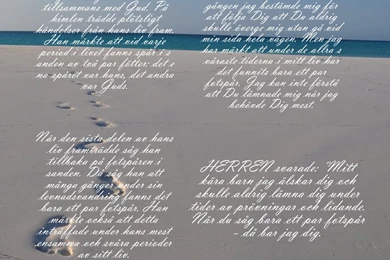 tillsammans med Gud. På
himlen trädde plötsligt
händelser från hans liv fram.
Han märkte att vid varje
period i livet fanns spår i s
anden av två par fötter: det e
na spåret var hans, det andra
var Guds.
När den sista delen av hans
liv framträdde såg han
tillbaka på fotspåren i
sanden. Då såg han att
många gånger under sin
levnadsvandring fanns det
bara ett par fotspår. Han
märkte också att detta
inträffade under hans mest
ensamma och svåra perioder
av sitt liv.
gången jag bestämde mig för
att följa Dig att Du aldrig
skulle överge mig utan gå vid
min sida hela vägen. Men jag
has märkt att under de allra s
våraste tiderna i mitt liv har
det funnits bara ett par
fotspår. Jag kan inte förstå
att Du lämnade mig när jag
behövde Dig mest.
HERREN svarade: "Mitt
kära barn jag älskar dig och
skulle aldrig lämna dig under
tider av prövningar och lidande.
När du såg bara ett par fotspår
- då bar jag dig.